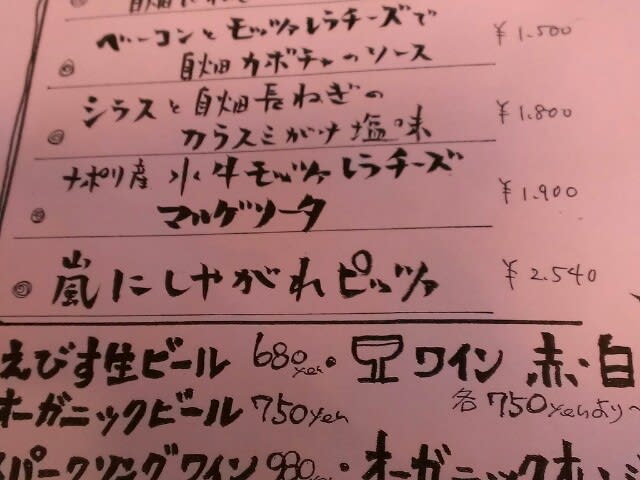 ベーコンとモッツァレラチーズで
自畑カボチャのソース ¥1.500
シラスと自畑長ねぎの
カラスミがけ塩味 ¥1.800
ナポリ産 水牛モッツァレラチーズ
マルゲリータ ¥1.900
嵐にしやがれピッツァ ¥2.540
えびす生ビール 680yen・ワイン 赤・白
オーガニックビール 750yen 各750yenより〜
スパークリングワイン 980yen・オーガニックオレンジ